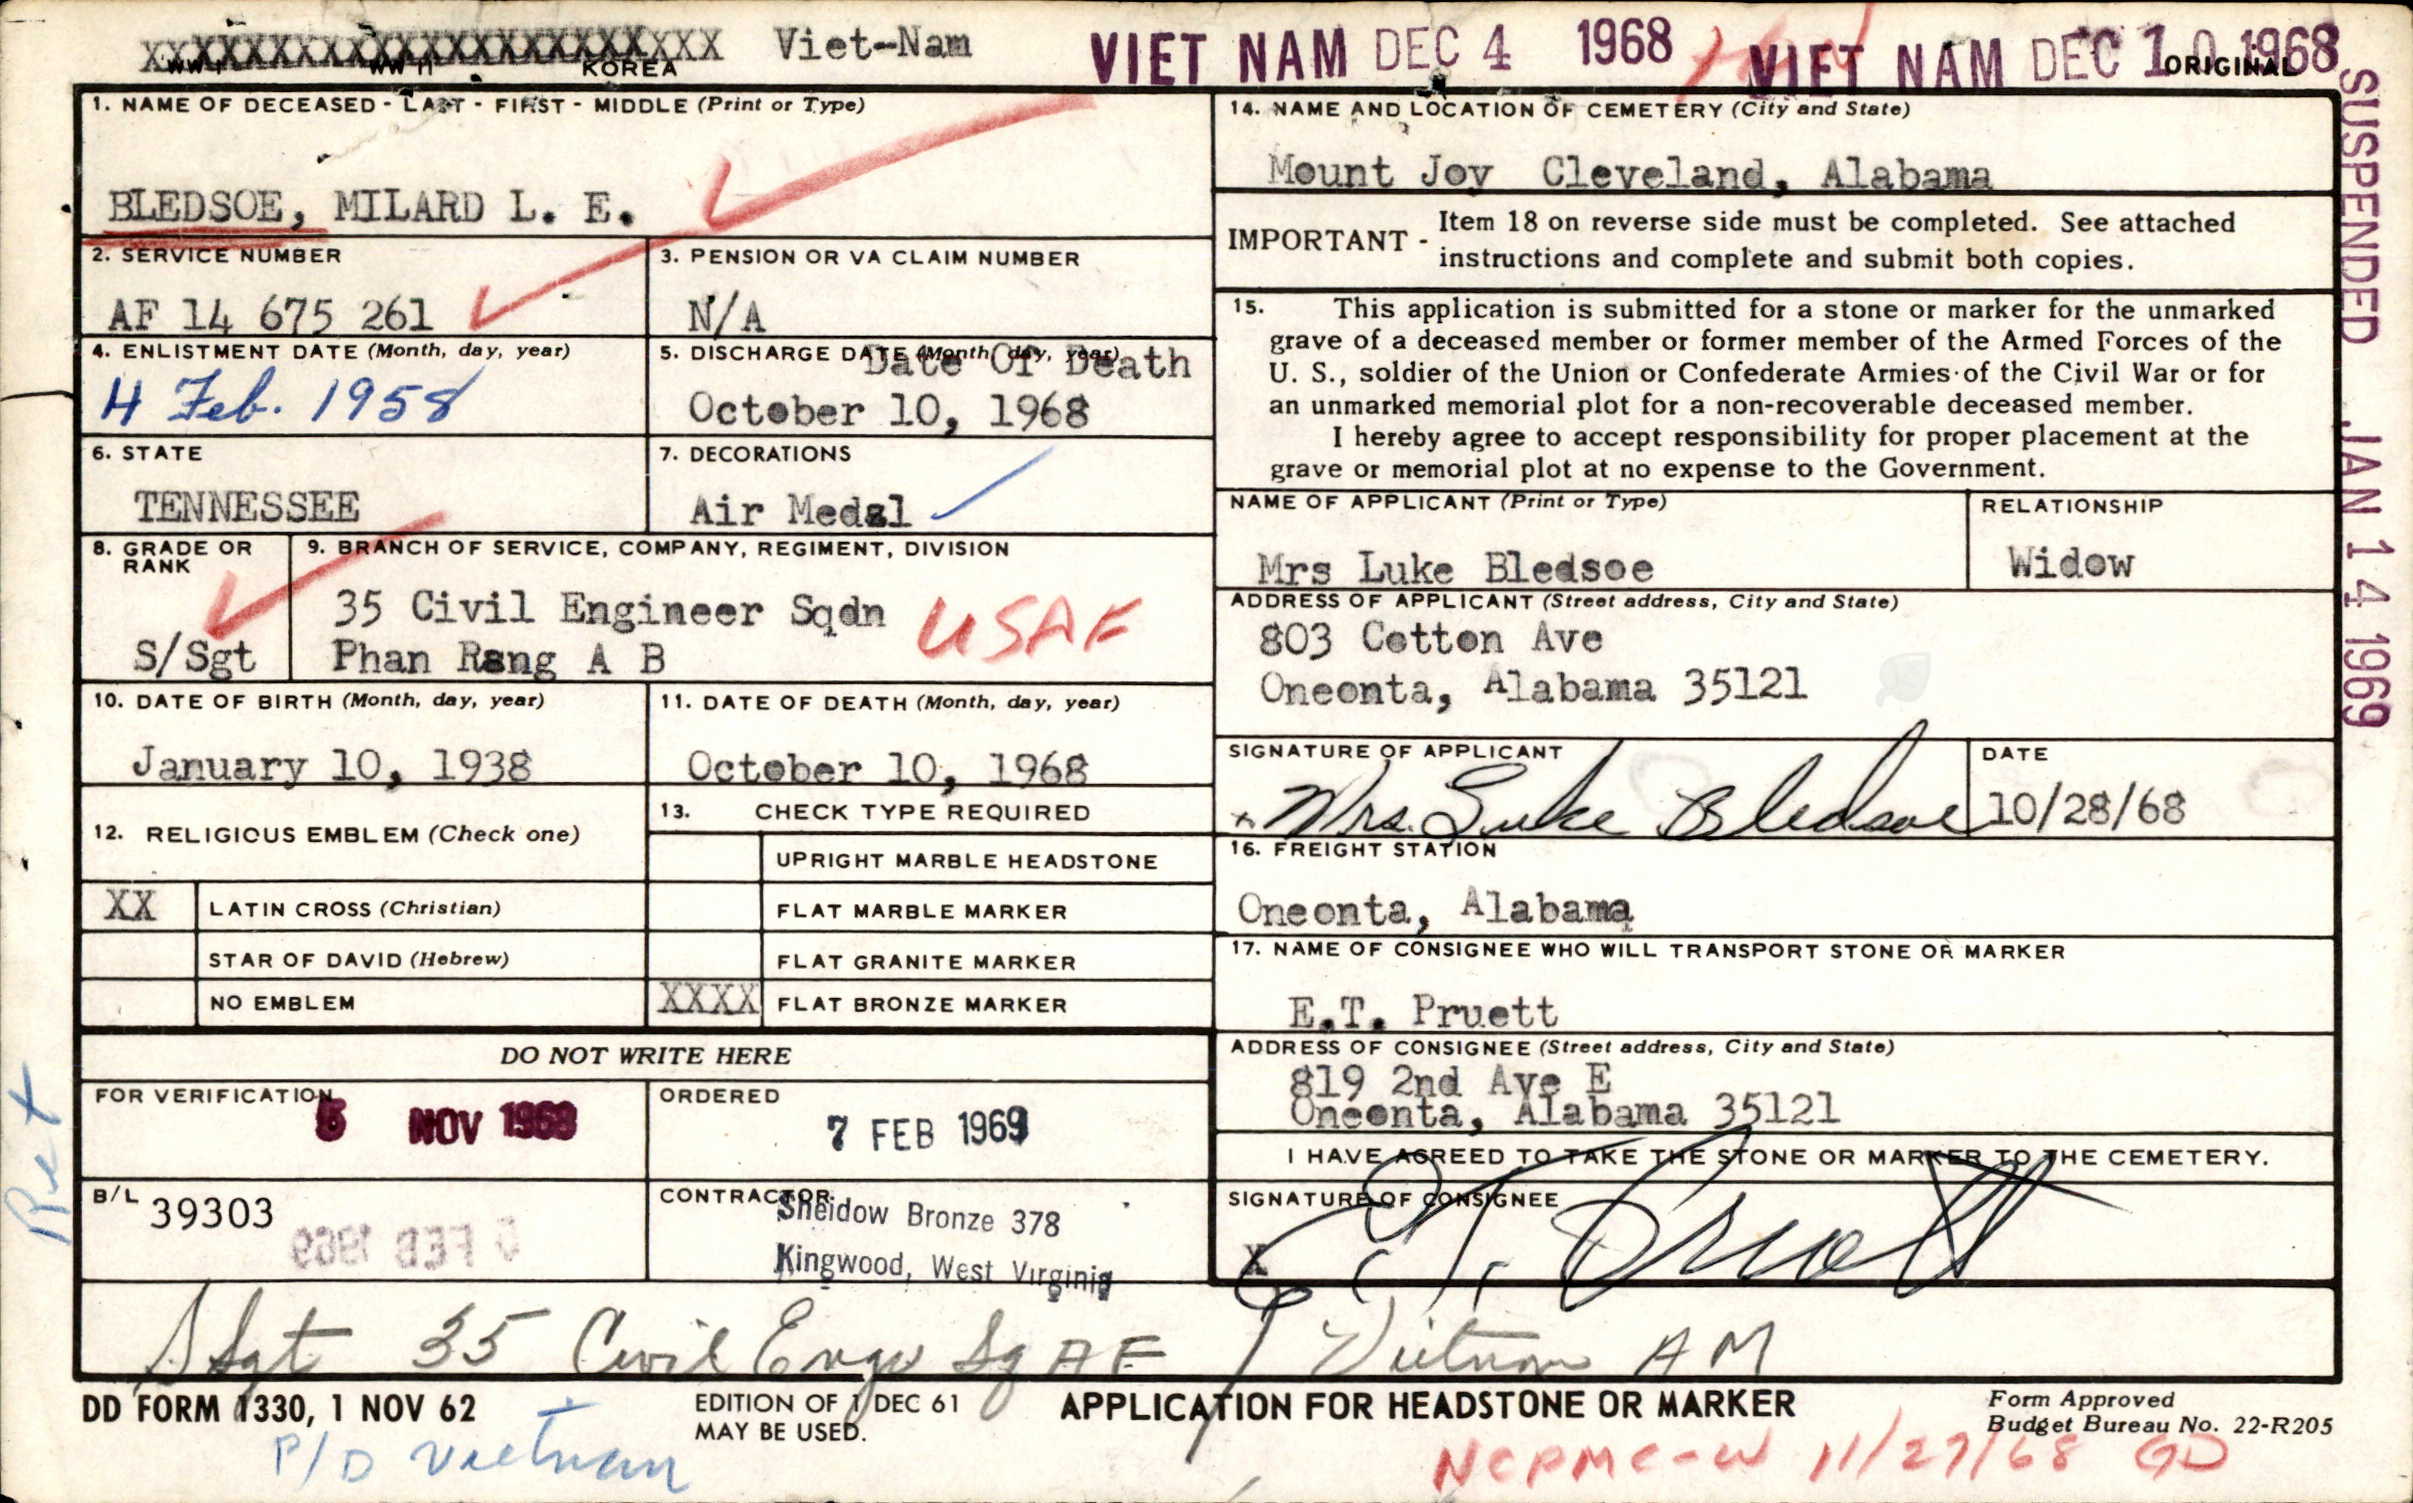 XXXXXXXXXXXXXXXXXXXXXXX Viet-Nam VIET NAM DEC 4 1968 VIET NAM DEC 10 1968
WW I WW II KOREA ORIGINAL
SUSPENDED JAN 14 1969
1. NAME OF DECEASED - LAST - FIRST - MIDDLE (Print or Type)
BLEDSOE, MILARD L. E.
2. SERVICE NUMBER
AF 14 675 261
3. PENSION OR VA CLAIM NUMBER
N/A
4. ENLISTMENT DATE (Month, day, year)
4 Feb. 1958
5. DISCHARGE DATE (Month, day, year)
Date Of Death
October 10, 1968
6. STATE
TENNESSEE
7. DECORATIONS
Air Medal
8. GRADE OR
RANK
S/Sgt
9. BRANCH OF SERVICE, COMPANY, REGIMENT, DIVISION
35 Civil Engineer Sqdn USAF
Phan Rang A B
10. DATE OF BIRTH (Month, day, year)
January 10, 1938
11. DATE OF DEATH (Month, day, year)
October 10, 1968
12. RELIGIOUS EMBLEM (Check one)
XX LATIN CROSS (Christian)
STAR OF DAVID (Hebrew)
NO EMBLEM
13. CHECK TYPE REQUIRED
UPRIGHT MARBLE HEADSTONE
FLAT MARBLE MARKER
FLAT GRANITE MARKER
XXXX FLAT BRONZE MARKER
DO NOT WRITE HERE
FOR VERIFICATION
NOV 1968
ORDERED
7 FEB 1969
B/L 39303
FEB 1969
CONTRACTOR
Sheidow Bronze 378
Kingwood, West Virginia
14. NAME AND LOCATION OF CEMETERY (City and State)
Mount Joy Cleveland, Alabama
IMPORTANT - Item 18 on reverse side must be completed. See attached
instructions and complete and submit both copies.
15. This application is submitted for a stone or marker for the unmarked
grave of a deceased member or former member of the Armed Forces of the
U. S., soldier of the Union or Confederate Armies of the Civil War or for
an unmarked memorial plot for a non-recoverable deceased member.
I hereby agree to accept responsibility for proper placement at the
grave or memorial plot at no expense to the Government.
NAME OF APPLICANT (Print or Type)
Mrs Luke Bledsoe
RELATIONSHIP
Widow
ADDRESS OF APPLICANT (Street address, City and State)
803 Cotton Ave
Oneonta, Alabama 35121
SIGNATURE OF APPLICANT
x Mrs. Luke Bledsoe
DATE
10/28/68
16. FREIGHT STATION
Oneonta, Alabama
17. NAME OF CONSIGNEE WHO WILL TRANSPORT STONE OR MARKER
E.T. Pruett
ADDRESS OF CONSIGNEE (Street address, City and State)
819 2nd Ave E
Oneonta, Alabama 35121
I HAVE AGREED TO TAKE THE STONE OR MARKER TO THE CEMETERY.
SIGNATURE OF CONSIGNEE
X E. T. Pruett
SSgt 35 Civil Engr Sq AF Vietnam AM
Ret
DD FORM 1330, 1 NOV 62
EDITION OF 1 DEC 61
MAY BE USED.
APPLICATION FOR HEADSTONE OR MARKER
Form Approved
Budget Bureau No. 22-R205
P/D Vietnam
NCPMC-W 11/27/68 GD